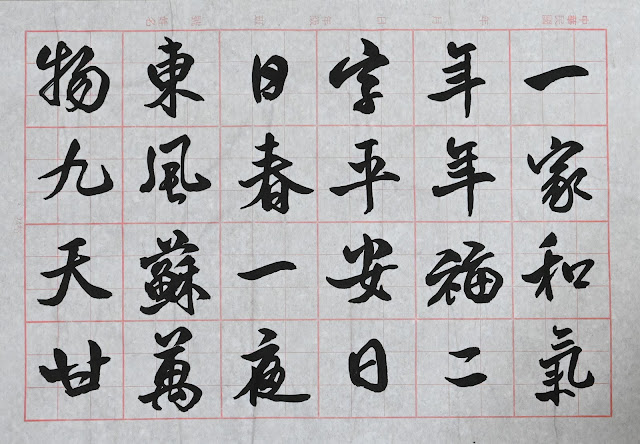 一家和氣
年年福二
字平安日
日春一夜
東風蘇萬
物九天甘